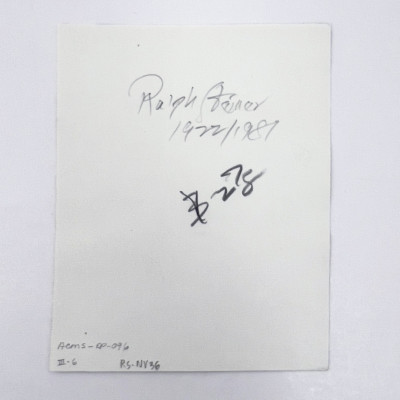 Ralph Steiner
1922/1981
278
ACMS-EP-096
III-6 RS-NY36